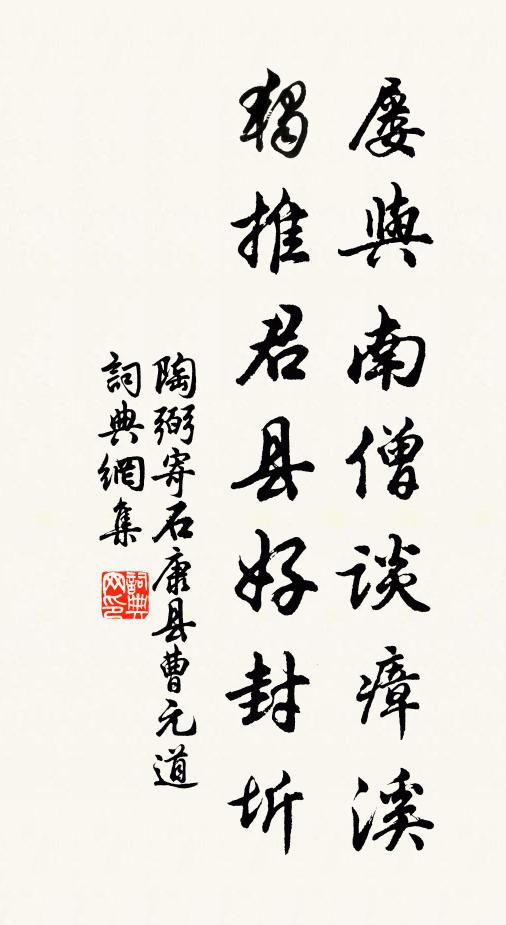 屡與南僧談瘴溪
獨推君县好封圻
陶弼寄石康县曹元道
詞典網集
詞典網印